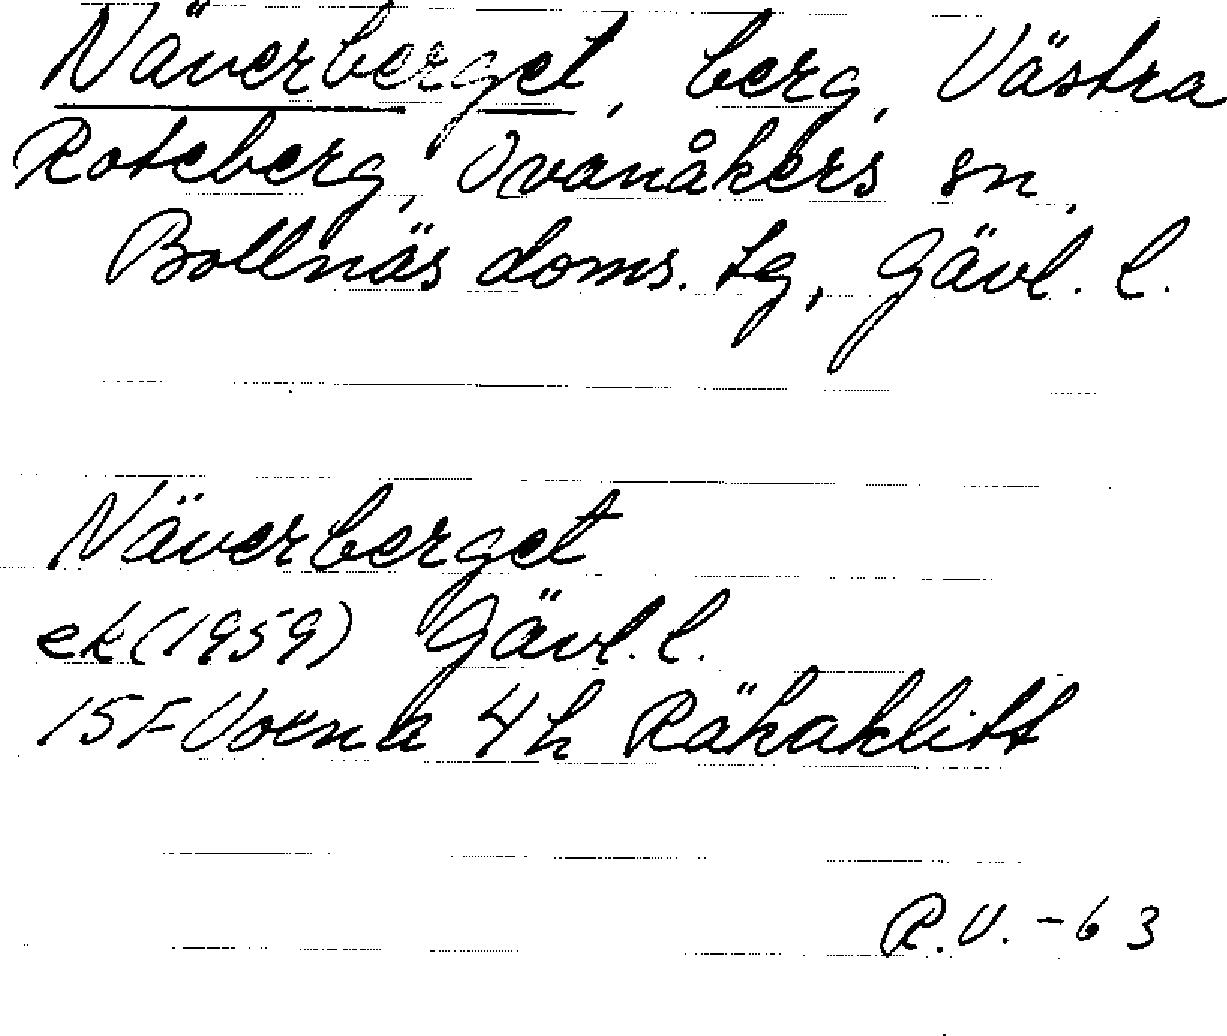 Näverberget, berg, Västra
Roteberg, Ovanåkers sn,
Bollnäs doms. tg, Gävl. l.
Näverberget
ek (1959) Gävl. l.
15F Voxna 4h Räkaklitt
R.V. - 63